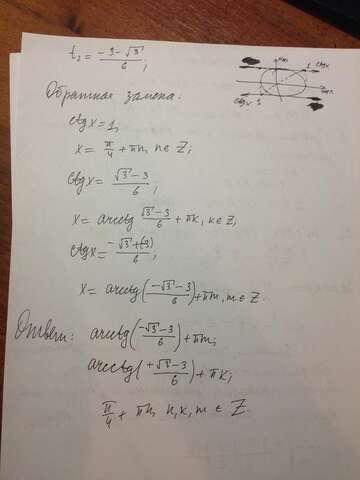 t₂ = (-3-√3)/6;
Обратная замена:
ctgx = 1,
x = π/4 + πn, n ∈ Z;
ctgx = (√3-3)/6;
x = arcctg (√3-3)/6 + πk, k ∈ Z,
ctgx = (-√3+(-3))/6;
x = arcctg((-√3-3)/6) + πm, m ∈ Z.
Ответ: arcctg((-√3-3)/6) + πm;
arcctg((+√3-3)/6) + πk;
π/4 + πn, n, k, m ∈ Z.